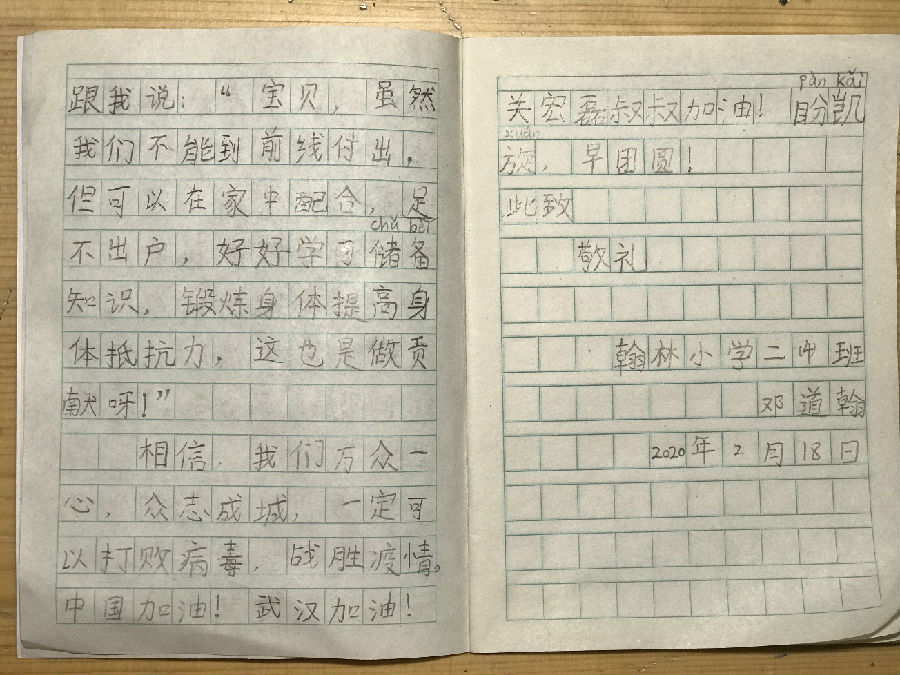 跟我说：“宝贝，虽然
我们不能到前线付出，
但可以在家中配合，足
chǔ bèi
不出户，好好学习储备
知识，锻炼身体提高身
体抵抗力，这也是做贡
献呀！”
相信，我们万众一
心，众志成城，一定可
以打败病毒，战胜疫情。
中国加油！武汉加油！
pàn kǎi
关宏磊叔叔加油！盼凯
xuán
旋，早团圆！
此致
敬礼
翰林小学二中班
邓道翰
2020年2月18日